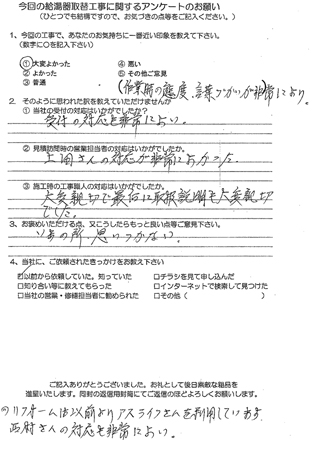 今回の給湯器取替工事に関するアンケートのお願い
(ひとつでも結構ですので、お気づきの点等をご記入ください。)
1、今回の工事で、あなたのお気持ちに一番近い印象を教えて下さい。
(数字に〇を記入下さい)
①大変よかった ④悪い
②よかった ⑤その他ご意見
③普通 (作業時の態度、言葉づかいが非常により。
2、そのように思われた訳を教えていただけませんか
① 当社の受付の対応はいかがでしたか?
受付の対応も非常によい。
② 見積訪問時の営業担当者の対応はいかがでしたか?
さんの対応が非常によかった。
③ 施工時の工事職人の対応はいかがでしたか。
大変親切で最后に取扱説明も大変親切
でした。
3、お褒めいただける点、又こうしたらもっと良い点等ご意見下さい。
今の所、思いつかない。
4、当社に、ご依頼されたきっかけをお教え下さい
☑以前から依頼していた。知っていた □チラシを見て申し込んだ
□知り合い等に教えてもらった □インターネットで検索して見つけた
□当社の営業・修繕担当者に勧められた □その他( )
ご記入ありがとうございました。お礼として後日素敵な粗品を
進呈いたします。同封の返信用封筒にてご返信のほどよろしくお願いします。
リフォームは以前よりアスライフさんを利用しています
西村さんの対応も非常によい。